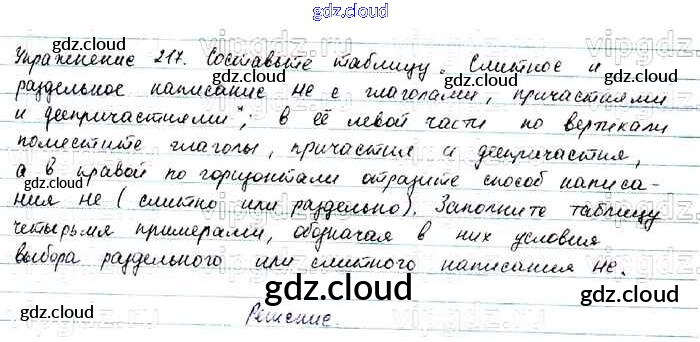 gdz.cloud
Упражнение 217. Составьте таблицу „Слитное и
раздельное написание не с глаголами, причастиями
и деепричастиями"; в её левой части по вертикали
поместите глаголы, причастия и деепричастия,
а в правой по горизонтали отразите способ написа-
ния не (слитно или раздельно). Заполните таблицу
четырьмя примерами, обозначая в них условия
выбора раздельного или слитного написания не.
gdz.cloud
Решение.